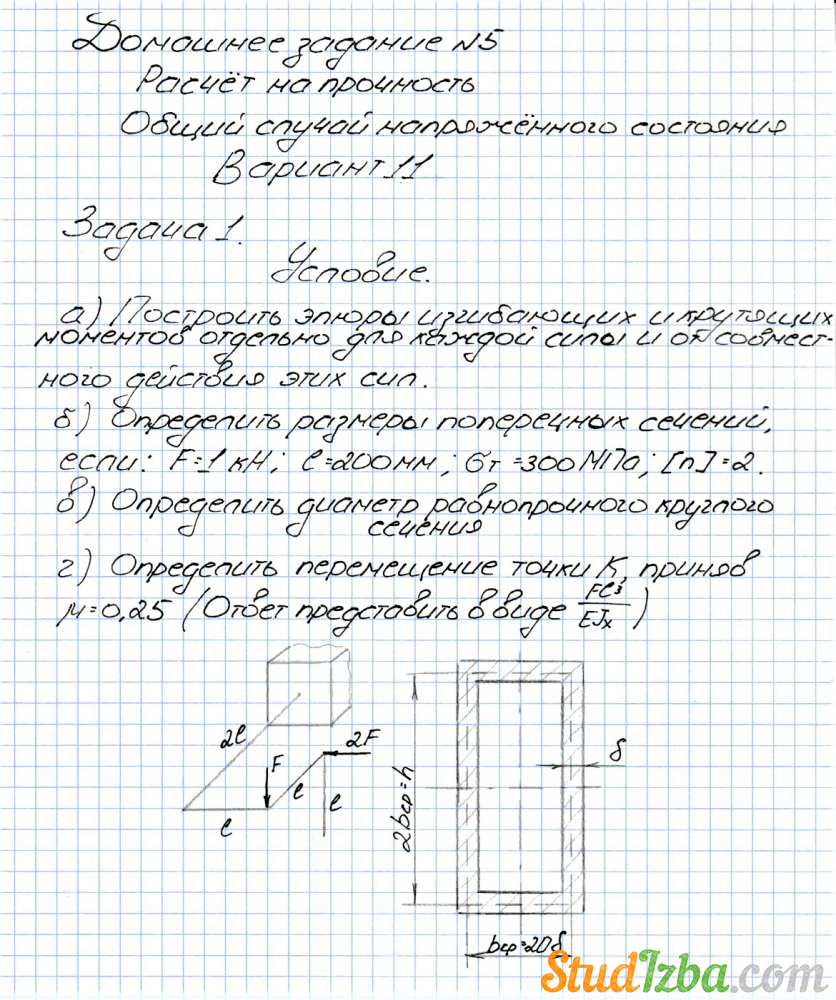 Домашнее задание №5
Расчёт на прочность
Общий случай напряжённого состояния
Вариант 11
Задача 1.
Условие.
а) Построить эпюры изгибающих и крутящих
моментов отдельно для каждой силы и от совмест-
ного действия этих сил.
б) Определить размеры поперечных сечений,
если: F=1 кН; l=200мм; Gт=300МПа; [n]=2.
в) Определить диаметр равнопрочного круглого
сечения
г) Определить перемещение точки К, приняв
μ=0,25 (Ответ представить в виде Fl³/EJx)
2l
F
2F
l
l
l
δ
2bср=h
bср=20δ
StudIzba.com